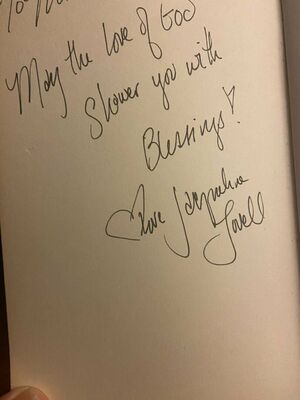 To
May the love of God
Shower you with
Blessings!
Love Jacqueline
Lovell